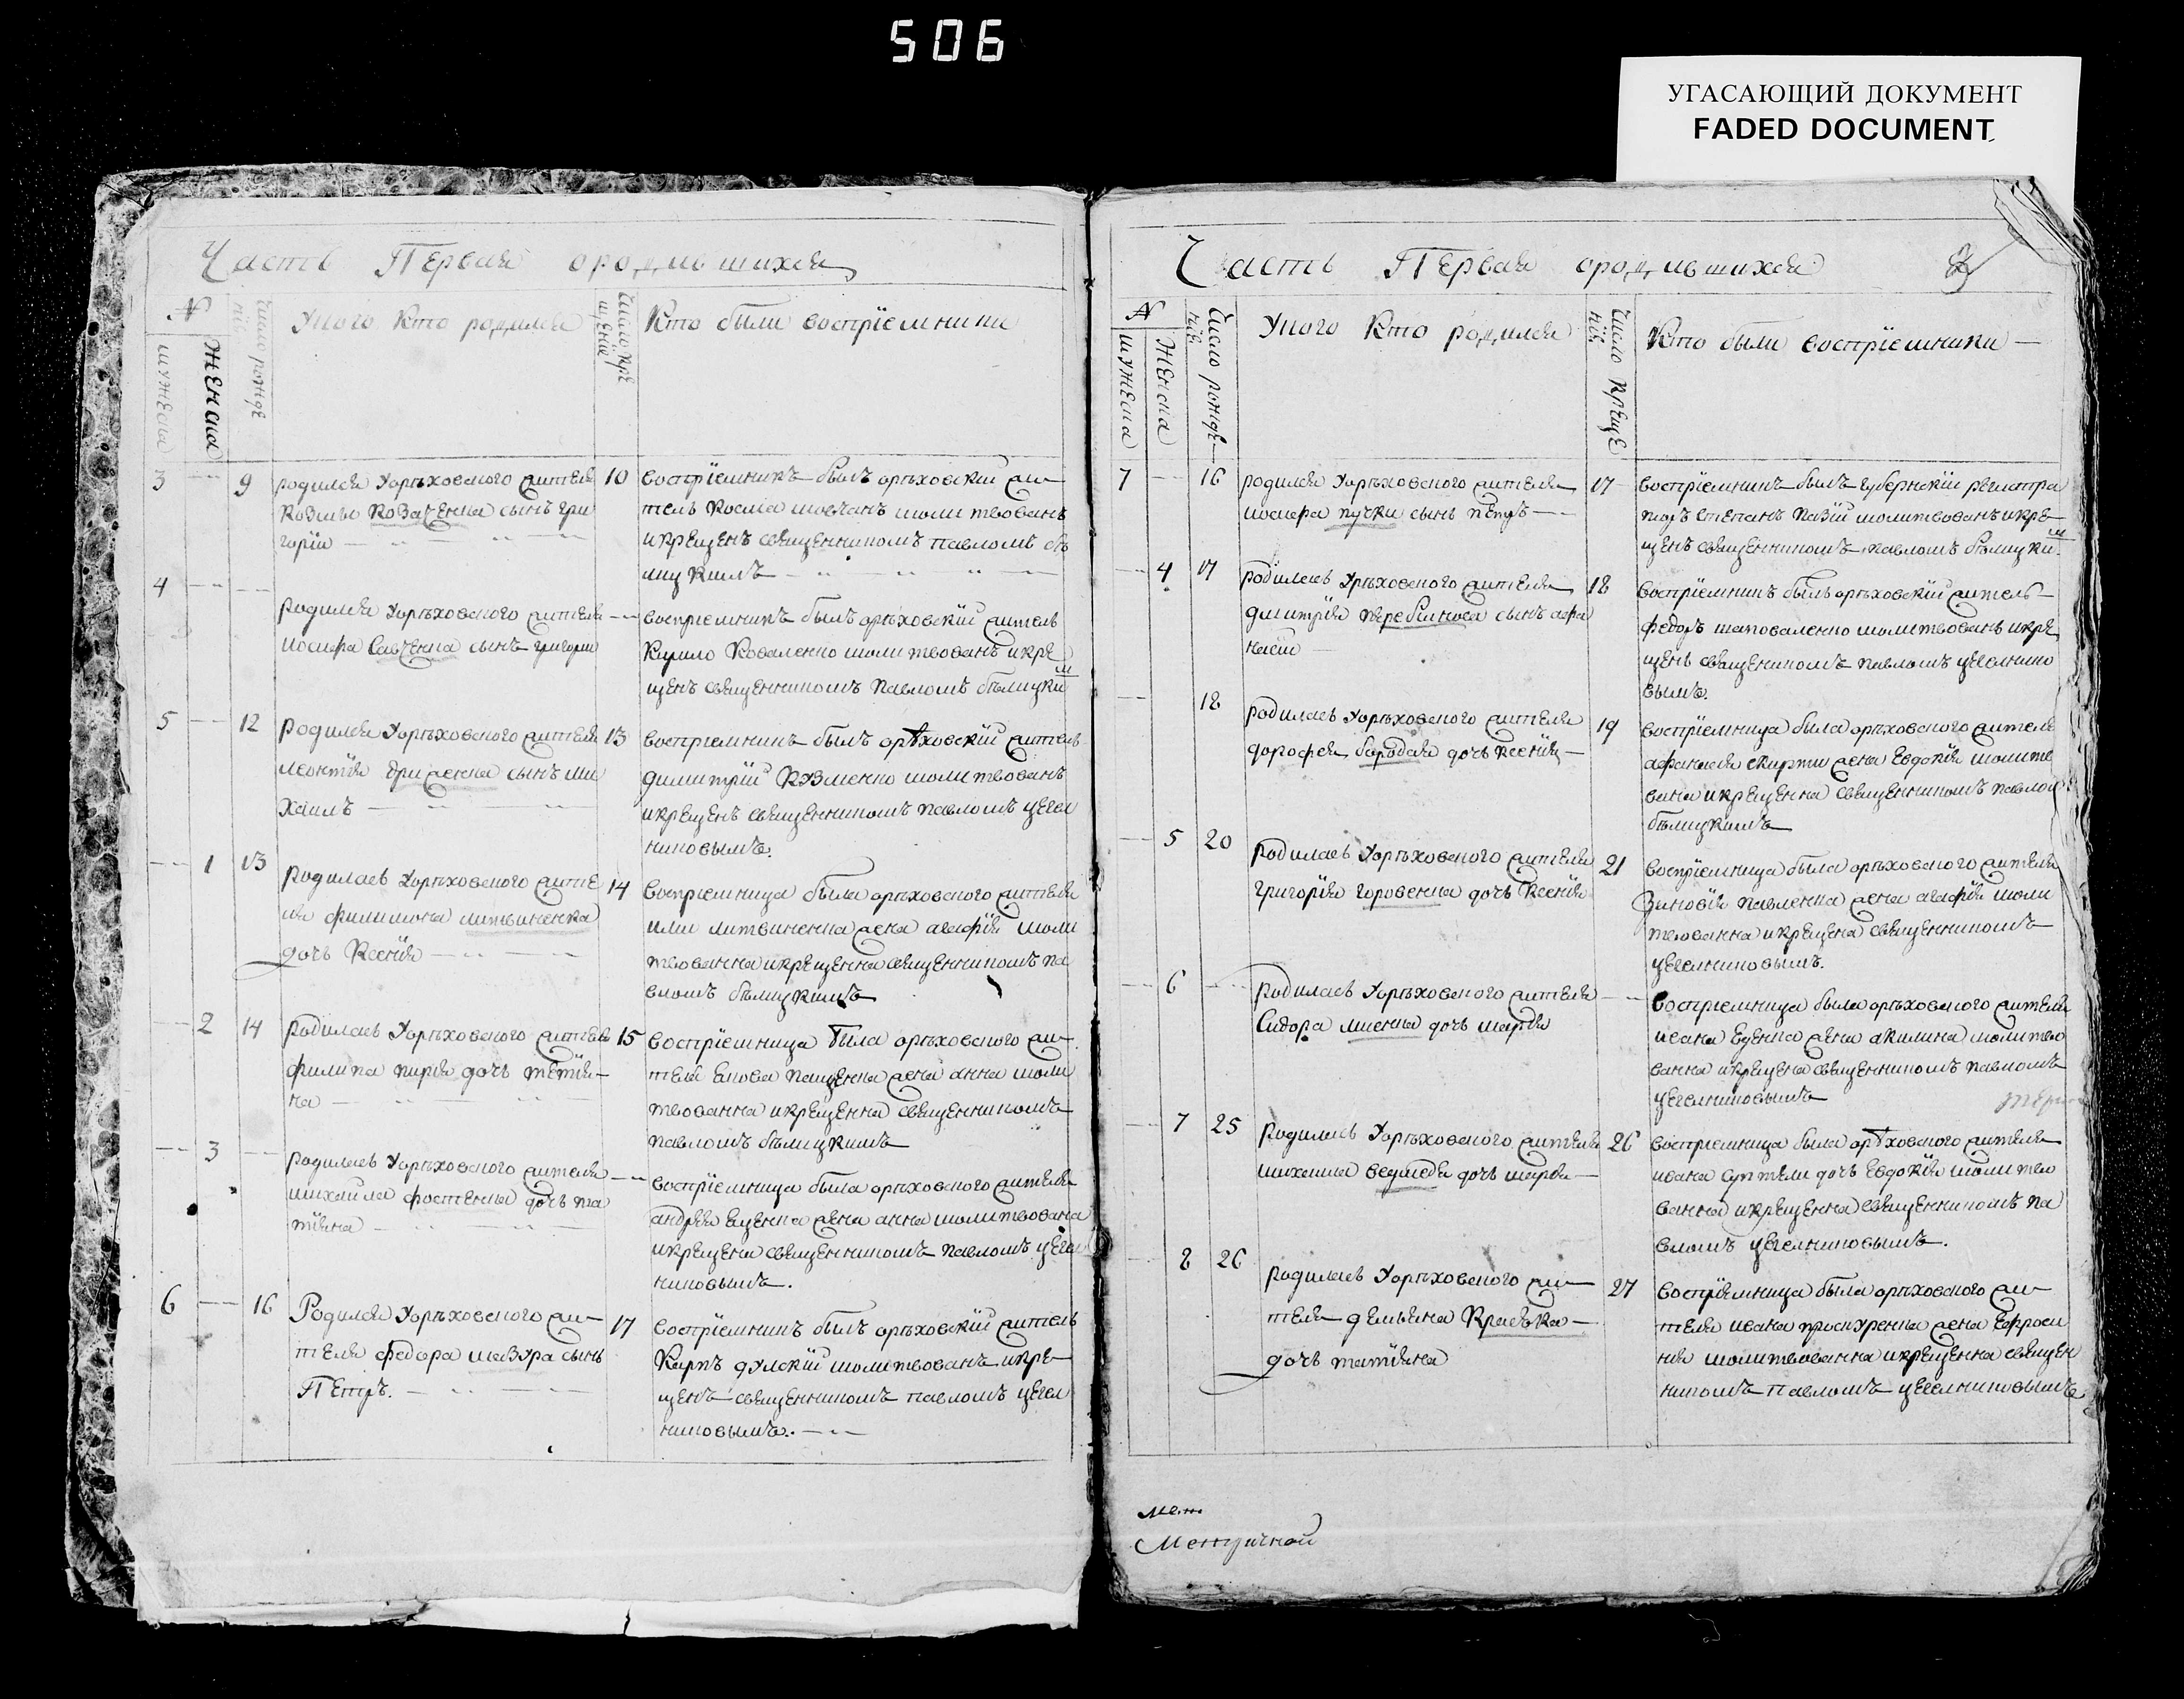 506
УГАСАЮЩИЙ ДОКУМЕНТ
FADED DOCUMENT
Часть Первая ородившихся
№
мужеска
женска
Число рожде
нія
Укого Кто родился
Число кре
щенія
Кто были воспріемники
3 9 родился Уорѣховского жителя 10
Козмы Козаченка сынъ гри
горій
воспріемникъ былъ орѣховскій жи
тель Косма молитвованъ
икрещенъ священникомъ павломъ бѣ
лицкимъ
4
родился Уорѣховского жителя
иосифа Савченка сынъ григорий
воспріемникъ былъ орѣховскій житель
Кирило Коваленко молитвованъ икре
щенъ священникомъ павломъ бѣлицким
5 12 родился Уорѣховского жителя 13
леонтія Гриценка сынъ ми
хаилъ
воспріемникъ былъ орѣховскій житель
димитрій Кузменко молитвованъ
икрещенъ священникомъ павломъ цегел
никовымъ.
1 13 родилась Уорѣховского жите 14
ля филимона литвиненка
дочь Ксенія
воспріемница была орѣховского жителя
или литвиненка жена агафія моли
твованна икрещенна священникомъ па
вломъ бѣлицкимъ
2 14 родилась Уорѣховского жителя 15
филипа пиря дочь тетія
на
воспріемница была орѣховского жи
теля якова пащенка жена анна моли
твованна икрещенна священникомъ
павломъ бѣлицкимъ
3
родилась Уорѣховского жителя
михаила фостенка дочь та
тіяна
воспріемница была орѣховского жителя
андрея ещенка жена анна молитвована
икрещена священникомъ павломъ цегел
никовымъ.
6 16 Родился Уорѣховского жи 17
теля федора мазура сынъ
Петръ.
воспріемникъ былъ орѣховскій житель
Карпъ дулскій молитвованъ икре
щенъ священникомъ павломъ цегел
никовымъ.
Часть Первая ородившихся
№
мужеска
женска
Число рожде
нія
Укого Кто родился
Число креще
нія
Кто были воспріемники
7 16 родился Уорѣховского жителя 17
иосифа пучки сынъ петръ
воспріемникъ былъ губернскій регистра
торъ степанъ молитвованъ икре
щенъ священникомъ павломъ бѣлицким
4 17 родилась Урѣховского жителя 18
димитрія перебийноса сынъ афа
насій
воспріемникъ былъ орѣховскій житель
федоръ шаповаленко молитвованъ икре
щенъ священикомъ павломъ цегелнико
вымъ.
18 родилась Уорѣховского жителя 19
дорофея бородая дочь Ксенія
воспріемница была орѣховского жителя
афанасія скирти жена Евдокія молитв
вана икрещенна священникомъ павлом
бѣлицкимъ
5 20 родилась Уорѣховского жителя 21
григорія горовенка дочь Ксенія
воспріемница была орѣховского жителя
Зиновія павленка жена агафія моли
твованна икрещена священникомъ
цегелниковымъ.
6
родилась Уорѣховского жителя
Сидора дочь марфа
воспріемница была орѣховского жителя
ивана жена акилина молитво
ванна икрещена священникомъ павломъ
цегелниковымъ
7 25 родилась Уорѣховского жителя 26
михаила ведмедя дочь марфа
воспріемница была орѣховского жителя
ивана дочь Евдокія молитво
ванна икрещенна священникомъ па
вломъ цегелниковымъ.
8 26 родилась Уорѣховского жи 27
теля демьяна Краська
дочь татіяна
воспріемница была орѣховского жи
теля ивана проскуренка жена Ефроси
нія молитвованна икрещенна священ
никомъ павломъ цегелниковымъ